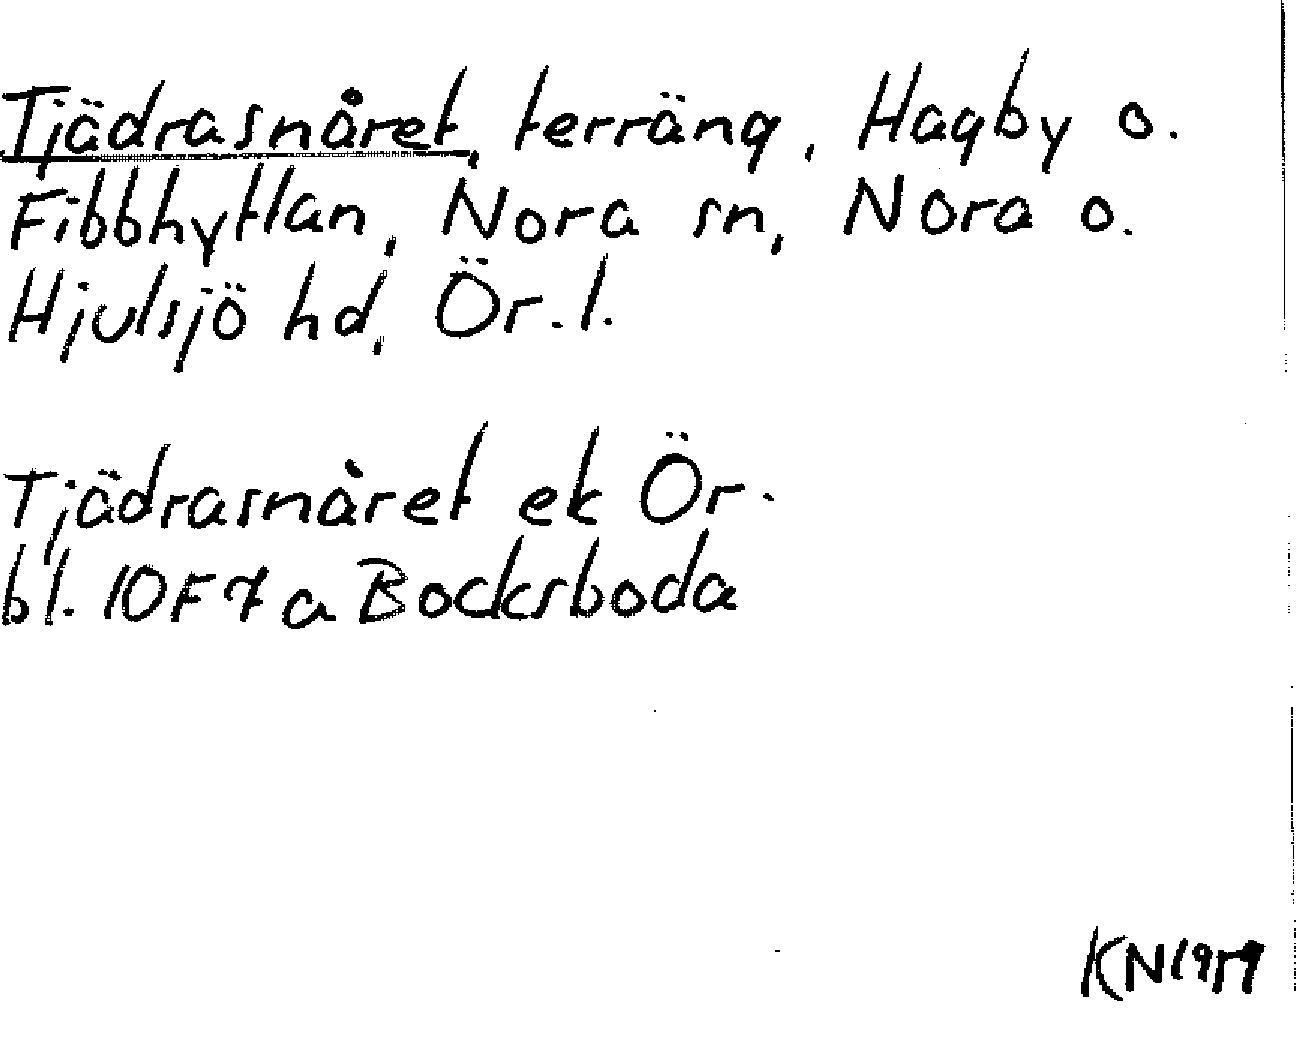 Tjädrasnåret, terräng, Hagby o.
Fibbhyttan, Nora sn, Nora o.
Hjulsjö hd, Ör. l.
Tjädrasnåret ek Ör.
bl. 10F7a Bocksboda
KN